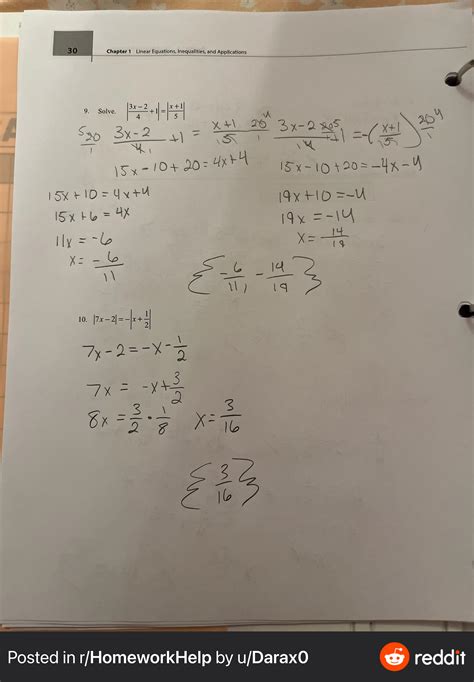 30 Chapter 1 Linear Equations, Inequalities, and Applications
9. Solve. |3x−2/4 + 1| = |x+1/5|
5 20/1 3x−2/4 +1 = x+1/5 20 4
15x−10+20=4x+4
15x+10=4x+4
15x+6=4x
11x=−6
x=−6/11
3x−2/4 +1=−(x+1/5) 20 4/1
15x−10+20=−4x−4
19x+10=−4
19x=−14
x=−14/19
{−6/11, −14/19}
10. |7x−2|=−|x+1/2|
7x−2=−x−1/2
7x=−x+3/2
8x=3/2·1/8 x=3/16
{3/16}
Posted in r/HomeworkHelp by u/Darax0
reddit